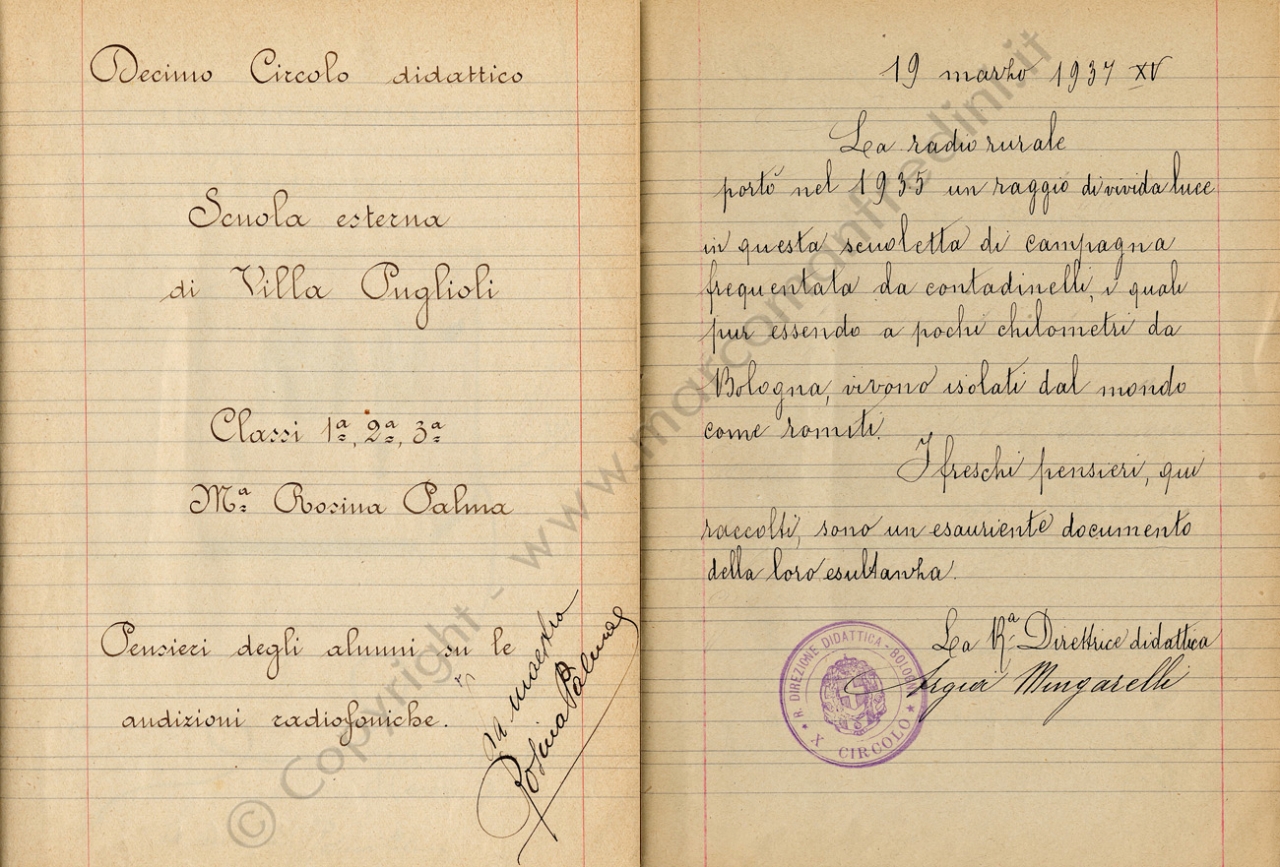 Decimo Circolo didattico
Scuola esterna
di Villa Puglioli
Classi 1ª, 2ª, 3ª
Mª Rosina Palma
Pensieri degli alunni su le
audizioni radiofoniche.
La maestra
Rosina Palma
19 marzo 1937 XV
La radio rurale
portò nel 1935 un raggio di vivida luce
in questa scuoletta di campagna
frequentata da contadinelli, i quali
pur essendo a pochi chilometri da
Bologna, vivono isolati dal mondo
come romiti.
I freschi pensieri, qui
raccolti, sono un esauriente documento
della loro esultanza.
La Rª Direttrice didattica
Argia Mingarelli
R. DIREZIONE DIDATTICA - BOLOGNA
X CIRCOLO
© Copyright - www.marcomanfredini.it